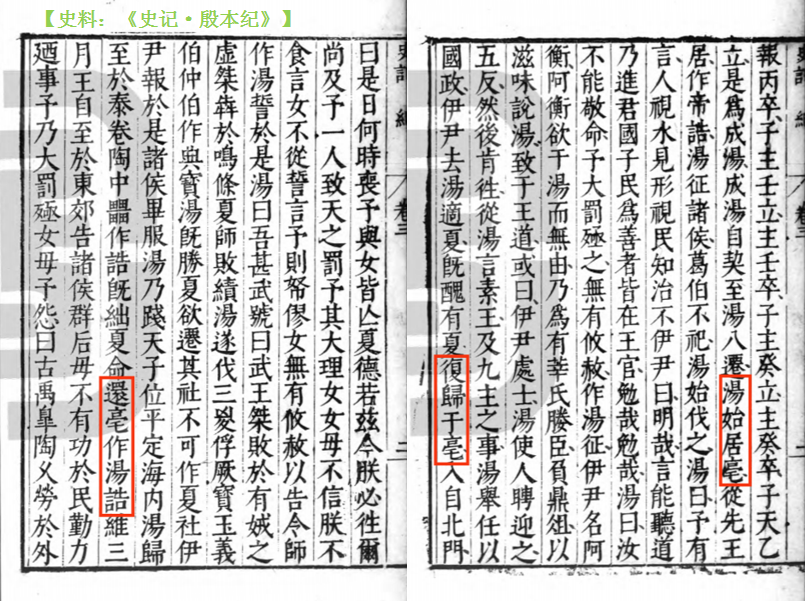 【史料：《史记·殷本纪》】
報丙卒子主壬立主壬卒子主癸立主癸卒子天乙
立是爲成湯成湯自契至湯八遷湯始居亳從先王
居作帝誥湯征諸侯葛伯不祀湯始伐之湯曰予有
言人視水見形視民知治不伊尹曰明哉言能聽道
乃進君國子民爲善者皆在王官勉哉勉哉湯曰汝
不能敬命予大罰殛之無有攸赦作湯征伊尹名阿
衡阿衡欲干湯而無由乃爲有莘氏媵臣負鼎俎以
滋味說湯致于王道或曰伊尹處士湯使人聘迎之
五反然後肯徃從湯言素王及九主之事湯舉任以
國政伊尹去湯適夏旣醜有夏復歸于亳入自北門
曰是日何時喪予與女皆亾夏德若兹今朕必徃爾
尚及予一人致天之罰予其大理女女毋不信朕不
食言女不從誓言予則帑僇女無有攸赦以告令師
作湯誓於是湯曰吾甚武號曰武王桀敗於有娀之
虛桀犇於鳴條夏師敗績湯遂伐三㚇俘厥寶玉義
伯仲伯作典寶湯旣勝夏欲遷其社不可作夏社伊
尹報於是諸侯畢服湯乃踐天子位平定海内湯歸
至於泰卷陶中壘作誥旣絀夏命還亳作湯誥維三
月王自至於東郊告諸侯群后毋不有功於民勤力
廼事予乃大罰殛女毋予怨曰古禹皐陶乆勞於外